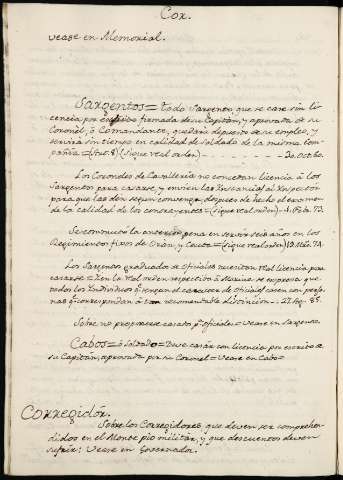 Cor.
vease en Memorial.
Sargentos = Todo Sargento, que se case sin li-
cencia por escrito firmada de su Capitán, y aprovada de su
Coronel, ó Comandante, quedará depuesto de su empleo, y
servirá sin tiempo en calidad de Soldado de la misma Com-
pañia = (Sigue real orden)
Los Coroneles de Cavalleria no concedan licencia á los
Sargentos para casarse, y envien las instancias al Inspector
para que las dén segun convenga, despues de hecho el examen
de la calidad de los contrayentes = (Sigue real orden)
Se conmutó la anterior pena en servir seis años en los
Regimientos fixos de Orán, y Ceuta = (Sigue real orden)
Los Sargentos graduados de oficiales necesitan Real licencia para
casarse = En la Real orden respectiva á Marina se expresa que
todos los Individuos qe. tengan el caracter de oficiales casen con perso-
nas qe. correspondan á tan recomendable distincion
Sobre no proponerse casado pa. oficiales = Vease en Sargento.
Cabos = ó Soldado = Deve casár con licencia por escrito de
su Capitán, aprovada por su Coronel = Vease en Cabo =
Corregidór.
Sobre los Corregidores que deven ser comprehen-
didos en el Monte pio militar, y que descuentos deven
sufrir: Vease en Governador.